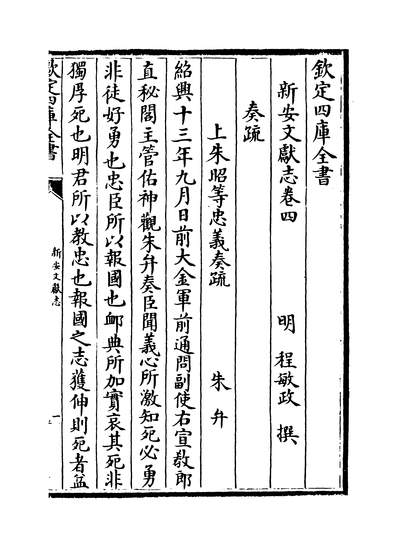 欽定四庫全書
新安文獻志卷四
明 程敏政 撰
奏疏
上朱昭等忠義奏疏 朱弁
紹興十三年九月日前大金軍前通問副使右宣敎郎
直秘閣主管佑神觀朱弁奏臣聞義心所激知死必勇
非徒好勇也忠臣所以報國也䘏典所加實哀其死非
獨厚死也明君所以教忠也報國之志獲伸則死者益
欽定四庫全書
新安文獻志
一